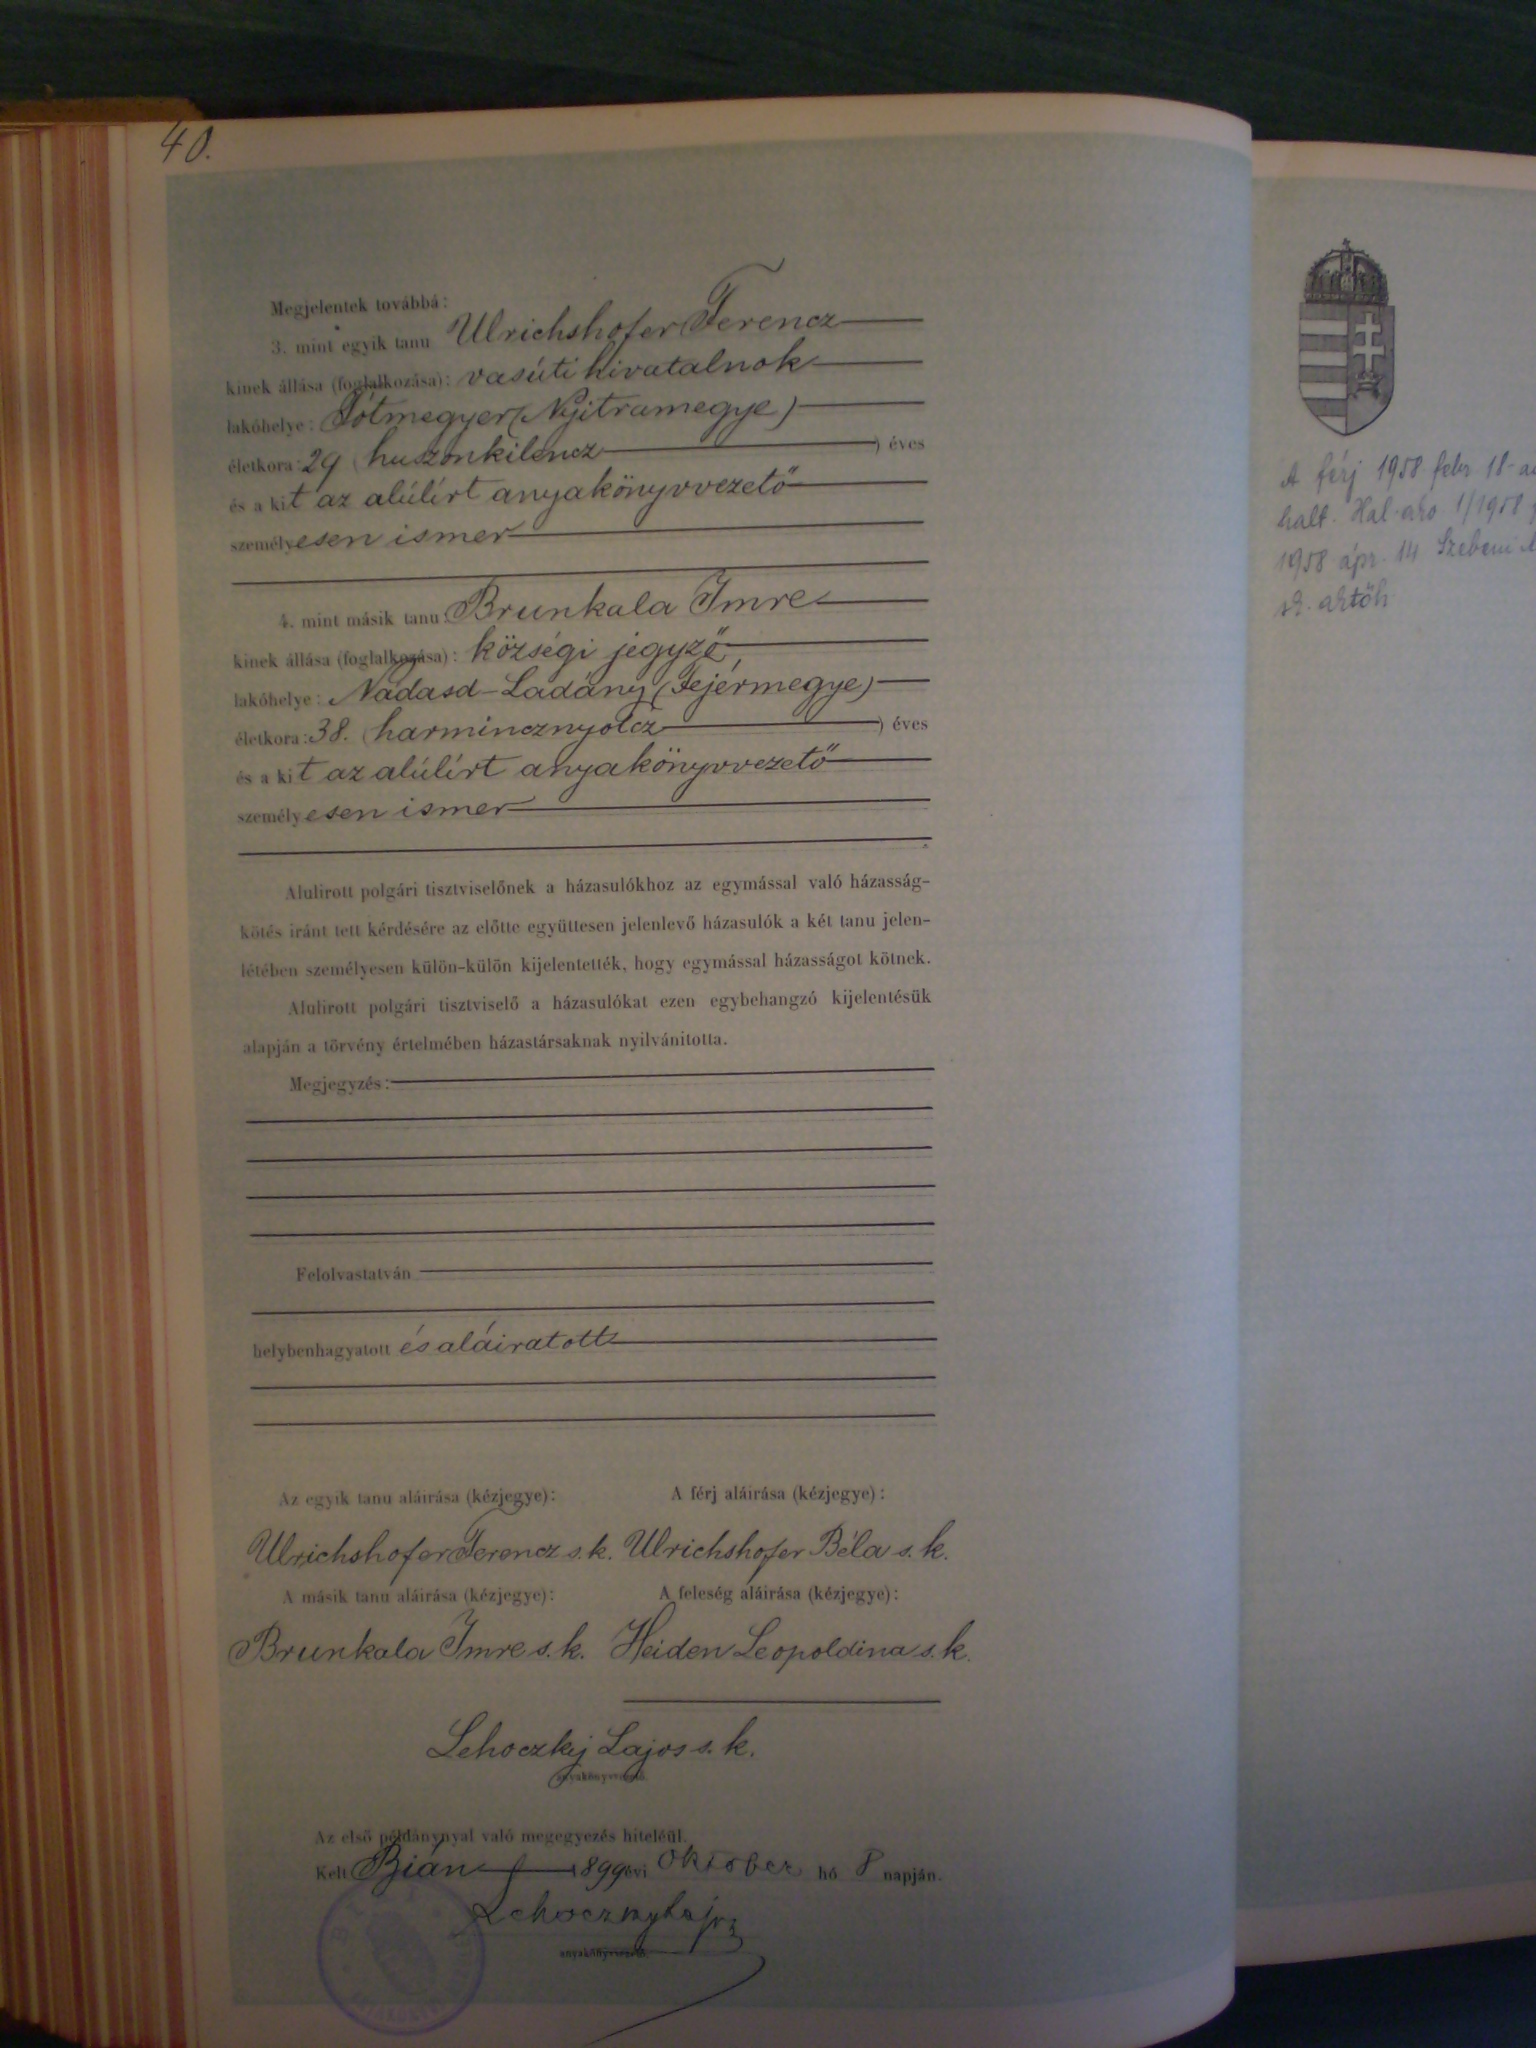 40.
Megjelentek továbbá:
3. mint egyik tanu Ulrichshofer Ferencz
kinek állása (foglalkozása): vasúti hivatalnok
lakóhelye: Tótmegyer (Nyitramegye)
életkora: 29 (huszonkilencz) éves
és a kit az alúlírt anyakönyvvezető
személyesen ismer
4. mint másik tanu Brunkala Imre
kinek állása (foglalkozása): községi jegyző
lakóhelye: Nádasd-Ladány (Fejérmegye)
életkora: 38. (harmincznyolcz) éves
és a kit az alúlírt anyakönyvvezető
személyesen ismer
Alulirott polgári tisztviselőnek a házasulókhoz az egymással való házasság-
kötés iránt tett kérdésére az előtte együttesen jelenlevő házasulók a két tanu jelen-
létében személyesen külön-külön kijelentették, hogy egymással házasságot kötnek.
Alulirott polgári tisztviselő a házasulókat ezen egybehangzó kijelentésük
alapján a törvény értelmében házastársaknak nyilvánitotta.
Megjegyzés:
Felolvastatván
helybenhagyatott és aláiratott
Az egyik tanu aláirása (kézjegye): A férj aláirása (kézjegye):
Ulrichshofer Ferencz s. k. Ulrichshofer Béla s. k.
A másik tanu aláirása (kézjegye): A feleség aláirása (kézjegye):
Brunkala Imre s. k. Heiden Leopoldina s. k.
Lehoczky Lajos s. k.
anyakönyvvezető.
Az első példánynyal való megegyezés hiteléül.
Kelt Bián 1899 évi október hó 8 napján.
Lehoczky Lajos
anyakönyvvezető.
A férj 1958 febr 18-
halt. Hal. ako 1/1958
1958 ápr. 14